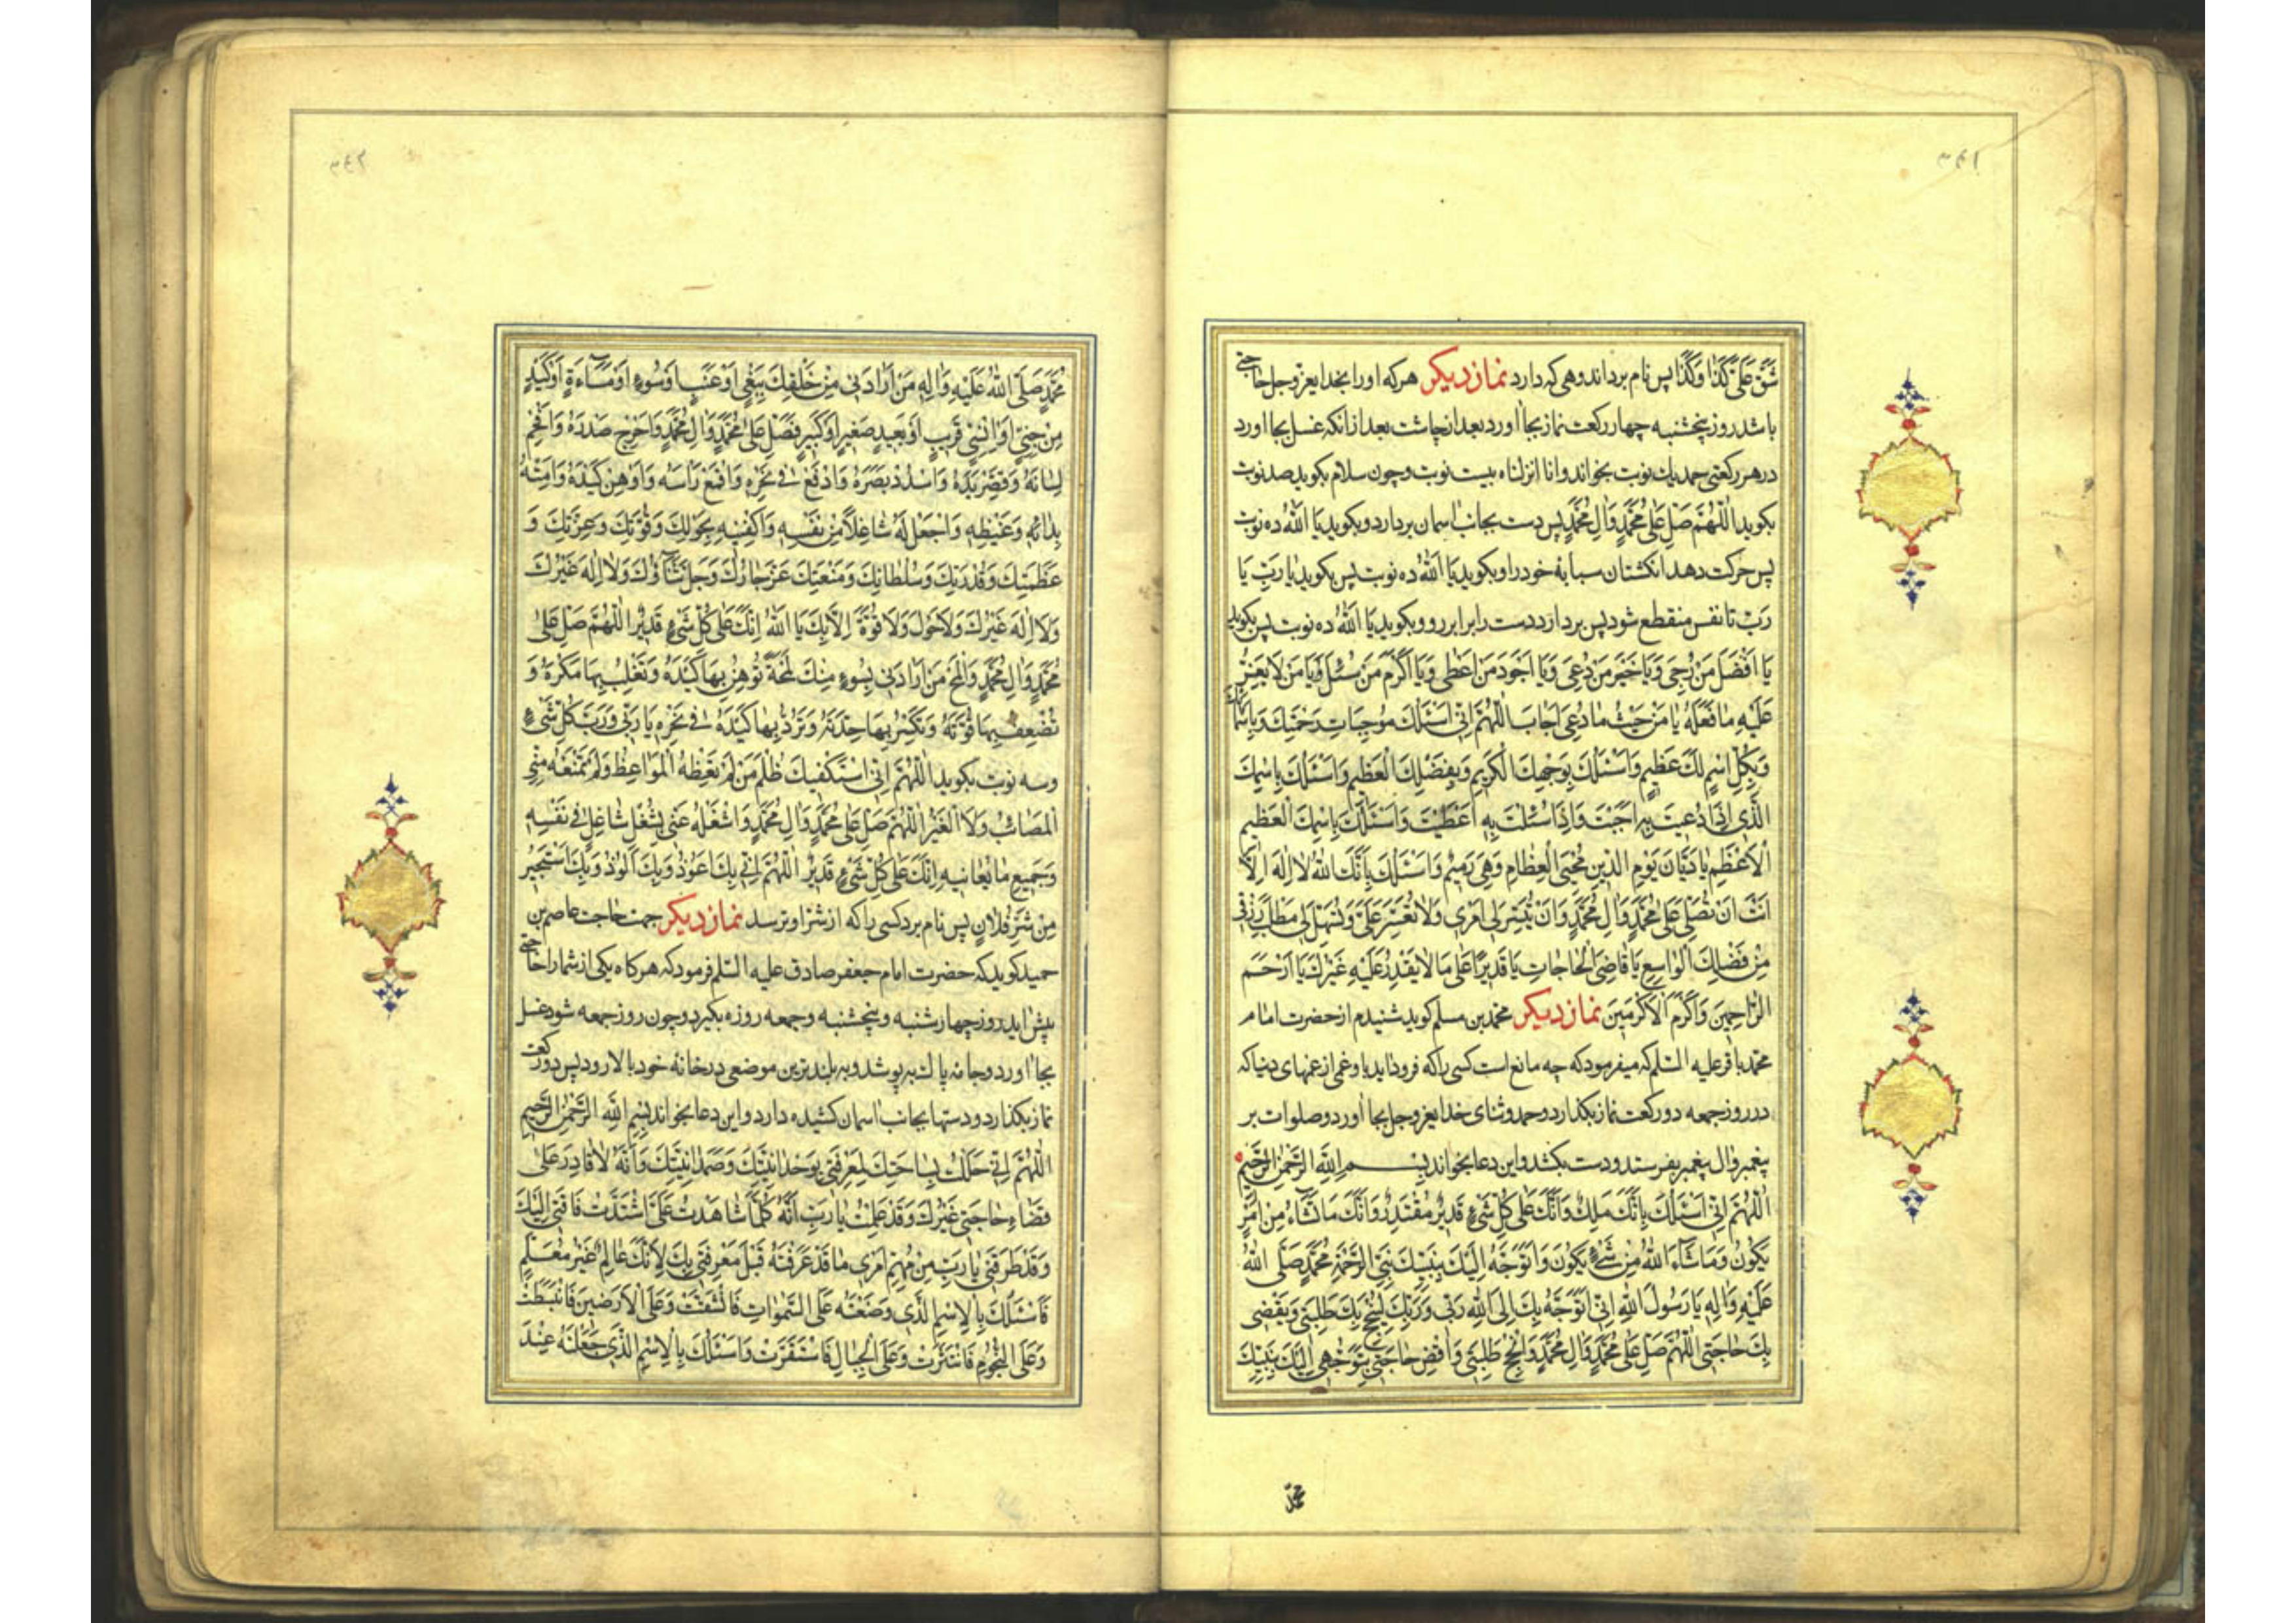 ٣٤١
شَقَّ عَلَیَّ کَذَا وَکَذَا پس نام برد اندوهی که دارد نماز دیگر هر که او را بخدای عزوجل حاجتی
باشد روز پنجشنبه چهار رکعت نماز بجا آورد بعد از چاشت بعد از انکه غسل بجا آورد
در هر رکعتی حمد یک نوبت بخواند و انا انزلناه بیست نوبت و چون سلام بکوید صد نوبت
بکوید اَللّٰهُمَّ صَلِّ عَلیٰ مُحَمَّدٍ وَالِ مُحَمَّدٍ پس دست بجانب اسمان بردارد و بکوید یَا اَللّٰهُ ده نوبت
پس حرکت دهد انکشتان سبابهٔ خود را و بکوید یَا اَللّٰهُ ده نوبت پس بکوید یَا رَبِّ یَا
رَبِّ تا نفس منقطع شود پس بردارد دست را برابر رو و بکوید یَا اَللّٰهُ ده نوبت پس بکوید
یَا اَفْضَلَ مَنْ رُجِیَ وَیَا خَیْرَ مَنْ دُعِیَ وَیَا اَجْوَدَ مَنْ اَعْطٰی وَیَا اَکْرَمَ مَنْ سُئِلَ وَیَا مَنْ لَا یَعِزُّ
عَلَیْهِ مَا فَعَلَهُ یَا مَنْ حَیْثُ مَا دُعِیَ اَجَابَ اَللّٰهُمَّ اِنِّی اَسْئَلُکَ مُوجِبَاتِ رَحْمَتِکَ وَبِاَسْمَائِکَ
وَبِکُلِّ اسْمٍ لَکَ عَظِیمٍ وَاَسْئَلُکَ بِوَجْهِکَ الْکَرِیمِ وَبِفَضْلِکَ الْعَظِیمِ وَاَسْئَلُکَ بِاسْمِکَ
الَّذِی اِذَا دُعِیتَ بِهِ اَجَبْتَ وَاِذَا سُئِلْتَ بِهِ اَعْطَیْتَ وَاَسْئَلُکَ بِاسْمِکَ الْعَظِیمِ
الْاَعْظَمِ یَا دَیَّانَ یَوْمِ الدِّینِ مُحْیِیَ الْعِظَامِ وَهِیَ رَمِیمٌ وَاَسْئَلُکَ بِاَنَّکَ اللّٰهُ لَا اِلٰهَ اِلَّا
اَنْتَ اَنْ تُصَلِّیَ عَلیٰ مُحَمَّدٍ وَالِ مُحَمَّدٍ وَاَنْ تُیَسِّرَ لِی اَمْرِی وَلَا تُعَسِّرَ عَلَیَّ وَتُسَهِّلَ لِی مَطْلَبَ رِزْقِی
مِنْ فَضْلِکَ الْوَاسِعِ یَا قَاضِیَ الْحَاجَاتِ یَا قَدِیرًا عَلیٰ مَا لَا یَقْدِرُ عَلَیْهِ غَیْرُکَ یَا اَرْحَمَ
الرَّاحِمِینَ وَاَکْرَمَ الْاَکْرَمِینَ نماز دیگر محمد بن مسلم کوید شنیدم از حضرت امام
محمد باقر علیه السلم که میفرمود که چه مانع است کسی را که فرود اید باو غمی از غمهای دنیا که
در روز جمعه دو رکعت نماز بکذارد و حمد و ثنای خدای عزوجل بجا آورد و صلوات بر
پیغمبر و ال پیغمبر بفرستد و دست بکشد و این دعا بخواند بِسْمِ اللّٰهِ الرَّحْمٰنِ الرَّحِیمِ
اَللّٰهُمَّ اِنِّی اَسْئَلُکَ بِاَنَّکَ مَلِکٌ وَاَنَّکَ عَلیٰ کُلِّ شَیْءٍ قَدِیرٌ مُقْتَدِرٌ وَاَنَّکَ مَا تَشَاءُ مِنْ اَمْرٍ
یَکُونُ وَمَا شَاءَ اللّٰهُ مِنْ شَیْءٍ یَکُونُ وَاَتَوَجَّهُ اِلَیْکَ بِنَبِیِّکَ نَبِیِّ الرَّحْمَةِ مُحَمَّدٍ صَلَّی اللّٰهُ
عَلَیْهِ وَالِهِ یَا رَسُولَ اللّٰهِ اِنِّی اَتَوَجَّهُ بِکَ اِلَی اللّٰهِ رَبِّی وَرَبِّکَ لِیُنْجِحَ بِکَ طَلِبَتِی وَیَقْضِیَ
بِکَ حَاجَتِی اَللّٰهُمَّ صَلِّ عَلیٰ مُحَمَّدٍ وَالِ مُحَمَّدٍ وَاَنْجِحْ طَلِبَتِی وَاقْضِ حَاجَتِی بِتَوَجُّهِی اِلَیْکَ بِنَبِیِّکَ
محمد
٣٤٢
مُحَمَّدٍ صَلَّی اللّٰهُ عَلَیْهِ وَالِهِ مَنْ اَرَادَنِی مِنْ خَلْقِکَ بِبَغْیٍ اَوْ عَنَتٍ اَوْ سُوءٍ اَوْ مَسَاءَةٍ اَوْ کَیْدٍ
مِنْ جِنِّیٍّ اَوْ اِنْسِیٍّ قَرِیبٍ اَوْ بَعِیدٍ صَغِیرٍ اَوْ کَبِیرٍ فَصَلِّ عَلیٰ مُحَمَّدٍ وَالِ مُحَمَّدٍ وَاَحْرِجْ صَدْرَهُ وَاَفْحِمْ
لِسَانَهُ وَقَصِّرْ یَدَهُ وَاسْدُدْ بَصَرَهُ وَادْفَعْ فِی نَحْرِهِ وَاقْمَعْ رَاْسَهُ وَاَوْهِنْ کَیْدَهُ وَاَمِتْهُ
بِدَائِهِ وَغَیْظِهِ وَاجْعَلْ لَهُ شَاغِلًا مِنْ نَفْسِهِ وَاکْفِنِیهِ بِحَوْلِکَ وَقُوَّتِکَ وَعِزَّتِکَ وَ
عَظَمَتِکَ وَقُدْرَتِکَ وَسُلْطَانِکَ وَمَنْعَتِکَ عَزَّ جَارُکَ وَجَلَّ ثَنَاؤُکَ وَلَا اِلٰهَ غَیْرُکَ
وَلَا اِلٰهَ غَیْرُکَ وَلَا حَوْلَ وَلَا قُوَّةَ اِلَّا بِکَ یَا اَللّٰهُ اِنَّکَ عَلیٰ کُلِّ شَیْءٍ قَدِیرٌ اَللّٰهُمَّ صَلِّ عَلیٰ
مُحَمَّدٍ وَالِ مُحَمَّدٍ وَالْمَحْ مَنْ اَرَادَنِی بِسُوءٍ مِنْکَ لَمْحَةً تُوهِنُ بِهَا کَیْدَهُ وَتَغْلِبُ بِهَا مَکْرَهُ وَ
تُضْعِفُ بِهَا قُوَّتَهُ وَتَکْسِرُ بِهَا حِدَّتَهُ وَتَرُدُّ بِهَا کَیْدَهُ فِی نَحْرِهِ یَا رَبِّی وَرَبَّ کُلِّ شَیْءٍ
و سه نوبت بکوید اَللّٰهُمَّ اِنِّی اَسْتَکْفِیکَ ظُلْمَ مَنْ لَمْ تَعِظْهُ الْمَوَاعِظُ وَلَمْ تَمْنَعْهُ مِنِّی
الْمَصَائِبُ وَلَا الْغِیَرُ اَللّٰهُمَّ صَلِّ عَلیٰ مُحَمَّدٍ وَالِ مُحَمَّدٍ وَاشْغَلْهُ عَنِّی بِشُغْلٍ شَاغِلٍ فِی نَفْسِهِ
وَجَمِیعِ مَا یُعَانِیهِ اِنَّکَ عَلیٰ کُلِّ شَیْءٍ قَدِیرٌ اَللّٰهُمَّ اِنِّی بِکَ اَعُوذُ وَبِکَ اَلُوذُ وَبِکَ اَسْتَجِیرُ
مِنْ شَرِّ فُلَانٍ پس نام برد کسی را که از شر او ترسد نماز دیگر جهت حاجت عاصم بن
حمید کوید که حضرت امام جعفر صادق علیه السلم فرمود که هر کاه یکی از شما را حاجتی
پیش اید روز چهارشنبه و پنجشنبه و جمعه روزه بکیرد و چون روز جمعه شود غسل
بجا آورد و جامهٔ پاکیزه بپوشد و به بلندترین موضعی در خانهٔ خود بالا رود پس دو رکعت
نماز بکذارد و دستها بجانب اسمان کشیده دارد و این دعا بخواند بِسْمِ اللّٰهِ الرَّحْمٰنِ الرَّحِیمِ
اَللّٰهُمَّ اِنِّی حَلَلْتُ بِسَاحَتِکَ لِمَعْرِفَتِی بِوَحْدَانِیَّتِکَ وَصَمَدَانِیَّتِکَ وَاَنَّهُ لَا قَادِرَ عَلیٰ
قَضَاءِ حَاجَتِی غَیْرُکَ وَقَدْ عَلِمْتُ یَا رَبِّ اَنَّهُ کُلَّمَا شَاهَدْتُ عَلَیَّ اشْتَدَّتْ فَاقَتِی اِلَیْکَ
وَقَدْ طَرَقَنِی یَا رَبِّ مِنْ مُهِمِّ اَمْرِی مَا قَدْ عَرَفْتَهُ قَبْلَ مَعْرِفَتِی بِکَ لِاَنَّکَ عَالِمٌ غَیْرُ مُعَلَّمٍ
فَاَسْئَلُکَ بِالْاِسْمِ الَّذِی وَضَعْتَهُ عَلَی السَّمٰوَاتِ فَانْشَقَّتْ وَعَلَی الْاَرَضِینَ فَانْبَسَطَتْ
وَعَلَی النُّجُومِ فَانْتَثَرَتْ وَعَلَی الْجِبَالِ فَاسْتَقَرَّتْ وَاَسْئَلُکَ بِالْاِسْمِ الَّذِی جَعَلْتَهُ عِنْدَ